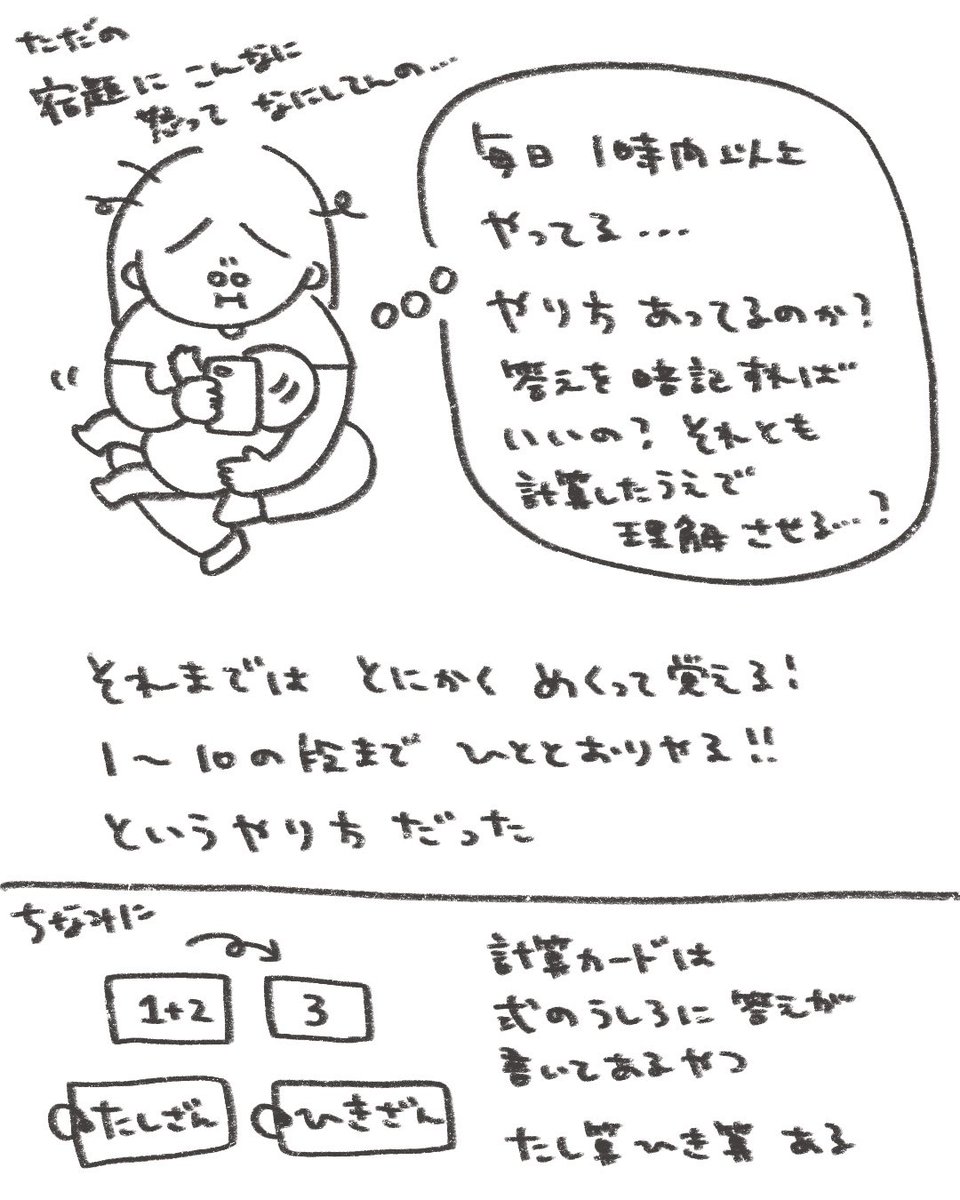 ただの
宿題に こんなに
怒って なにしてんの…
毎日 1時間以上
やってる…
やり方 あってるのか?
答えを 暗記すれば
いいの? それとも
計算したうえで
理解させる…?
それまでは とにかく めくって覚える!
1〜10の段まで ひととおりやる!!
というやり方 だった
ちなみに
1+2
3
たしざん
ひきざん
計算カードは
式のうしろに 答えが
書いてあるやつ
たし算ひき算 ある